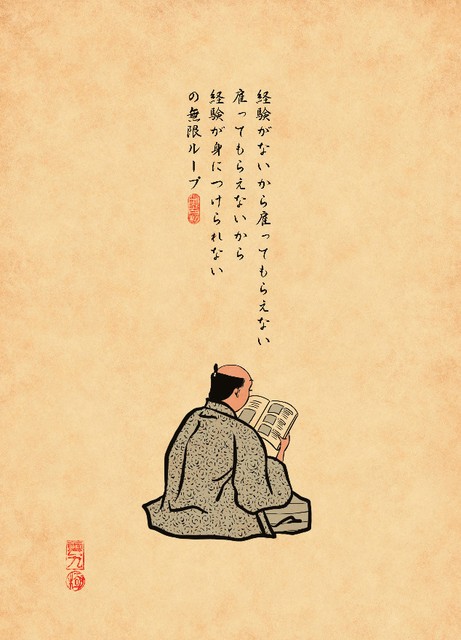 経験がないから雇ってもらえない
雇ってもらえないから
経験が身につけられない
の無限ループ